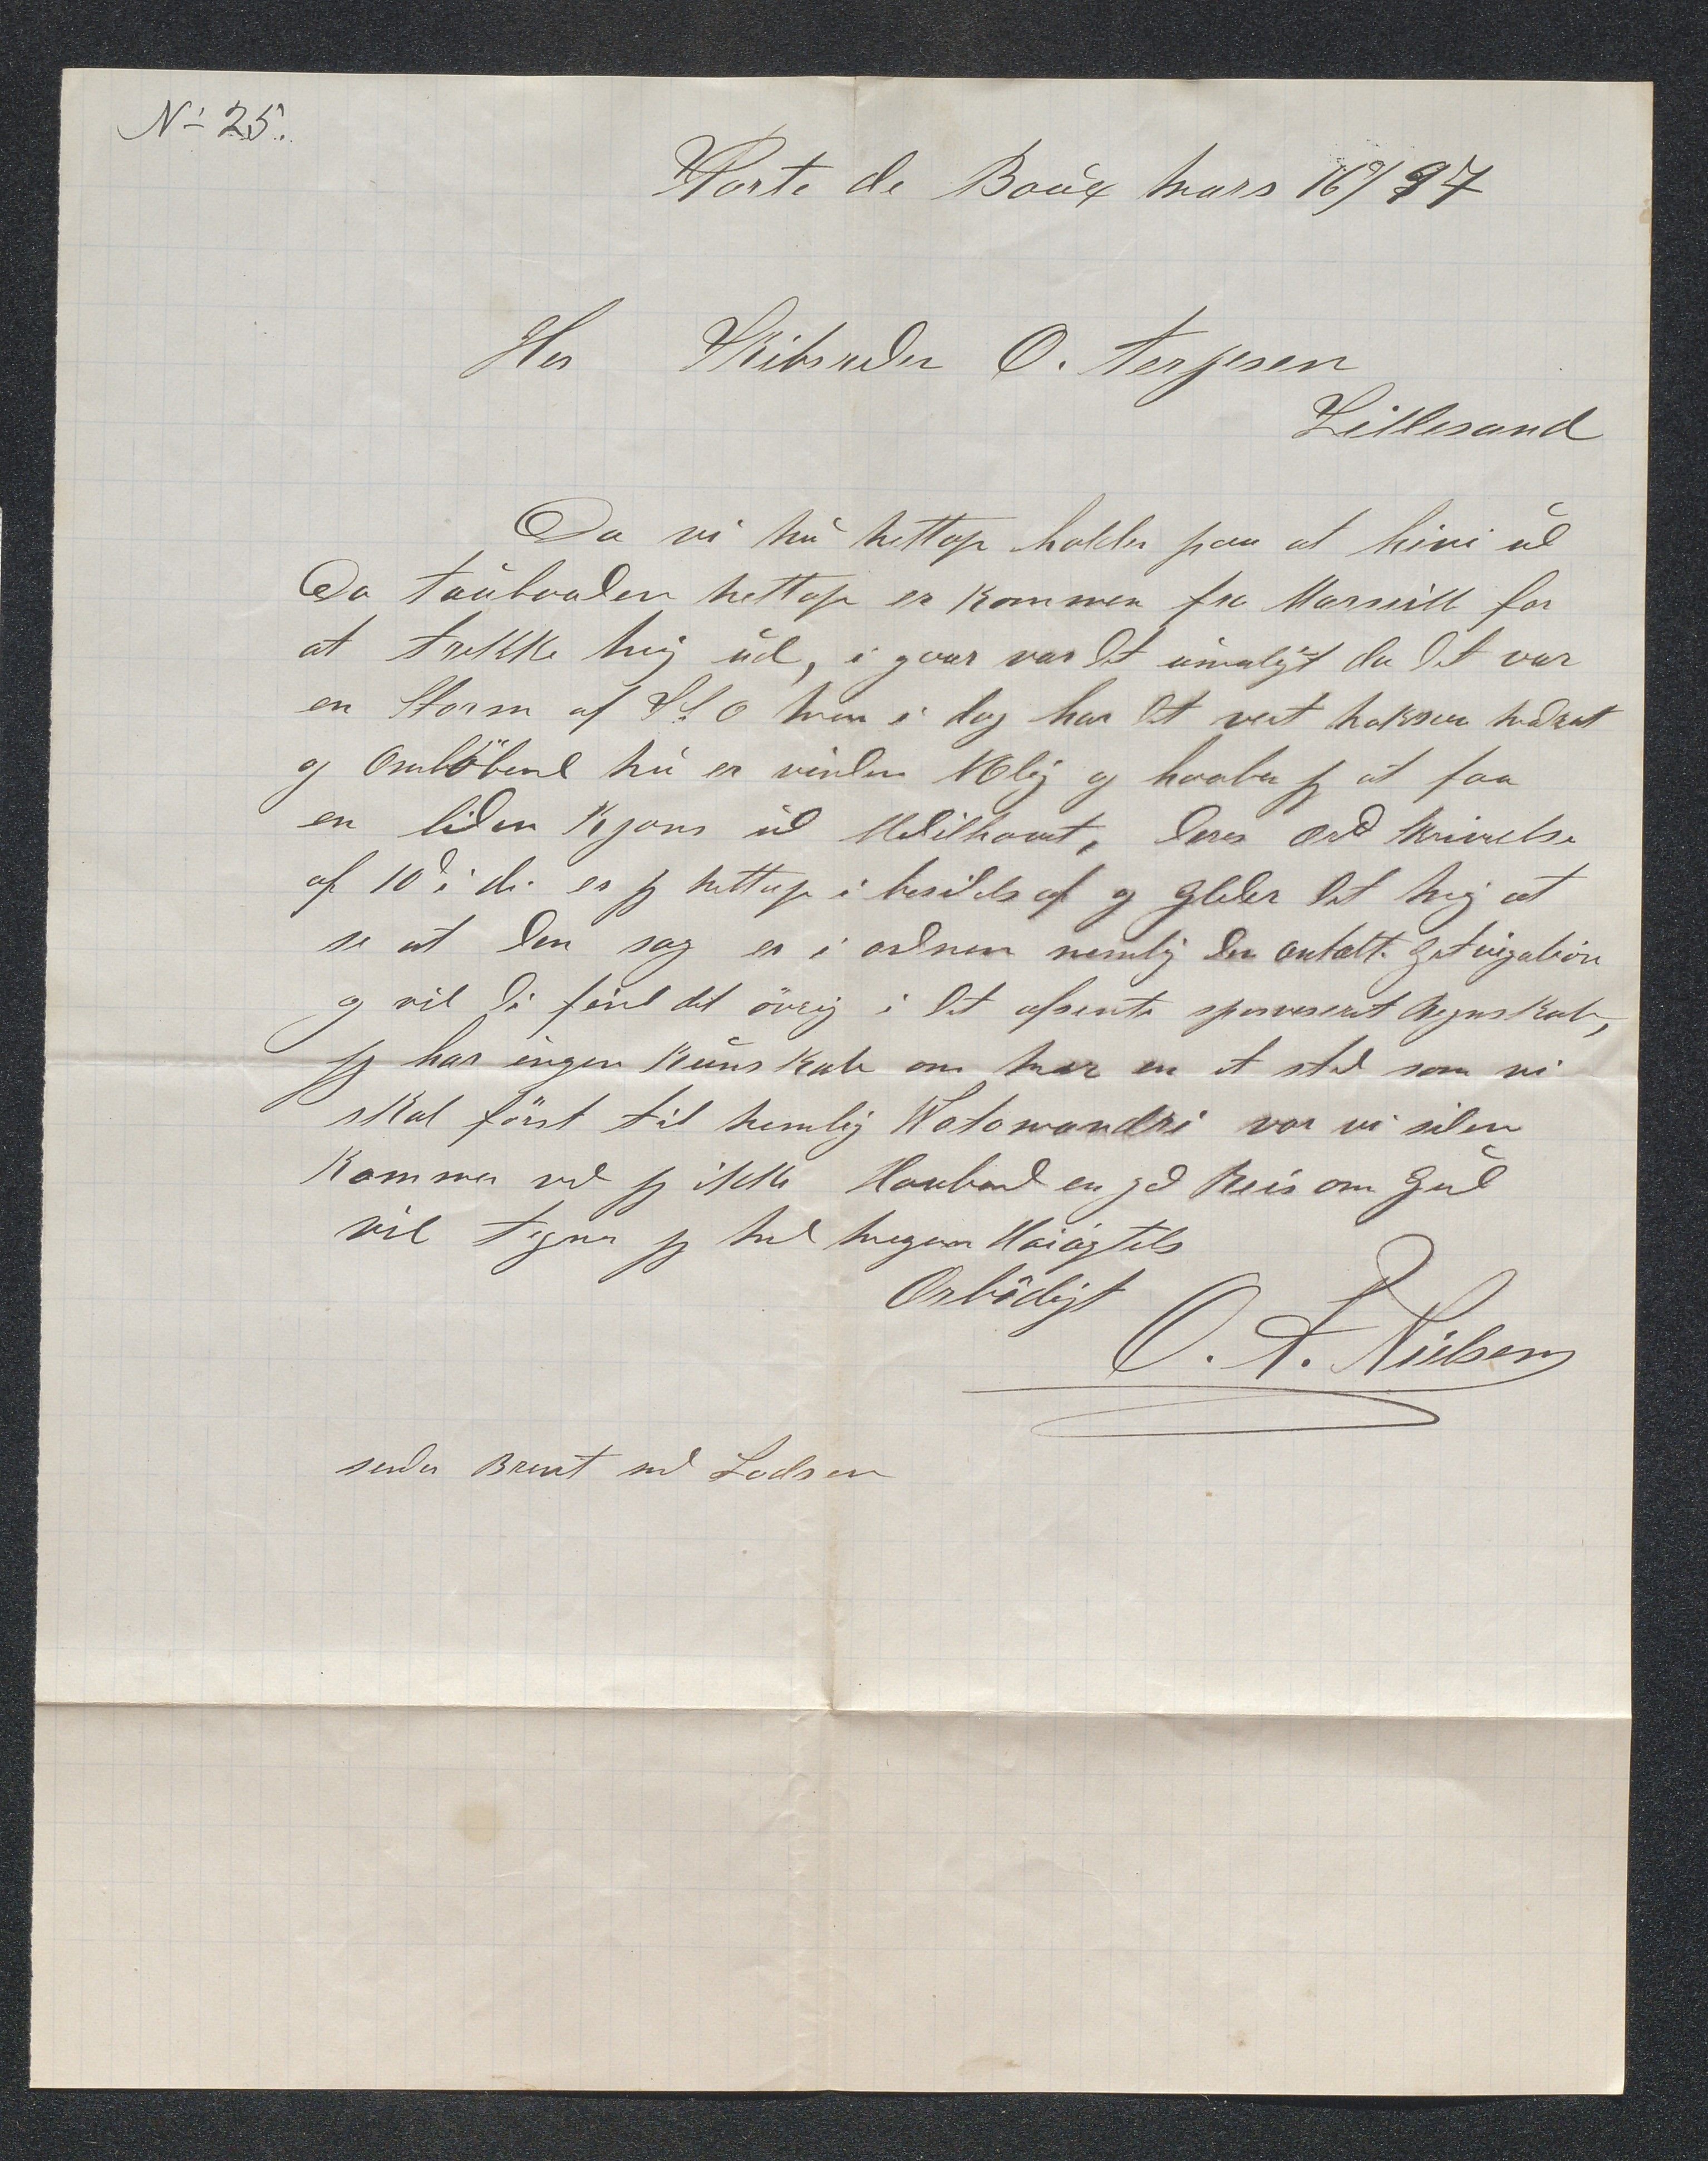 No 25.
Porte de Bouc Mars 16/97
Her Skibsreder O. Terjesen
Lillesand
Da vi nu nettop holder paa at hive ud
Da taubaaden nettop er kommen fra Marseill for
at trekke mig ud, i gaar var det umuligt da det var
en Storm af S.O men i dag har det vert
og Omlöbend nu er vinden NOlig og haaber jg at faa
en liden Kjans ud Midelhavet, Deres ærd skrivelse
af 10d i di. er jg nettop i besidels af og gleder det mig at
se at den sag er i ordnen nemlig den omtalt
og vil di find det övrig i det afsente Regnskab,
jg har ingen Kunskab om mer en et sted som vi
skal först til nemlig Wotowandri vor vi siden
kommer ved jg ikke Haabend en god Reis om Gud
vil tegner jg med megen Höiagtels
Ærbödigst
O. T. Nielsen
sender Brevet med Lodsen